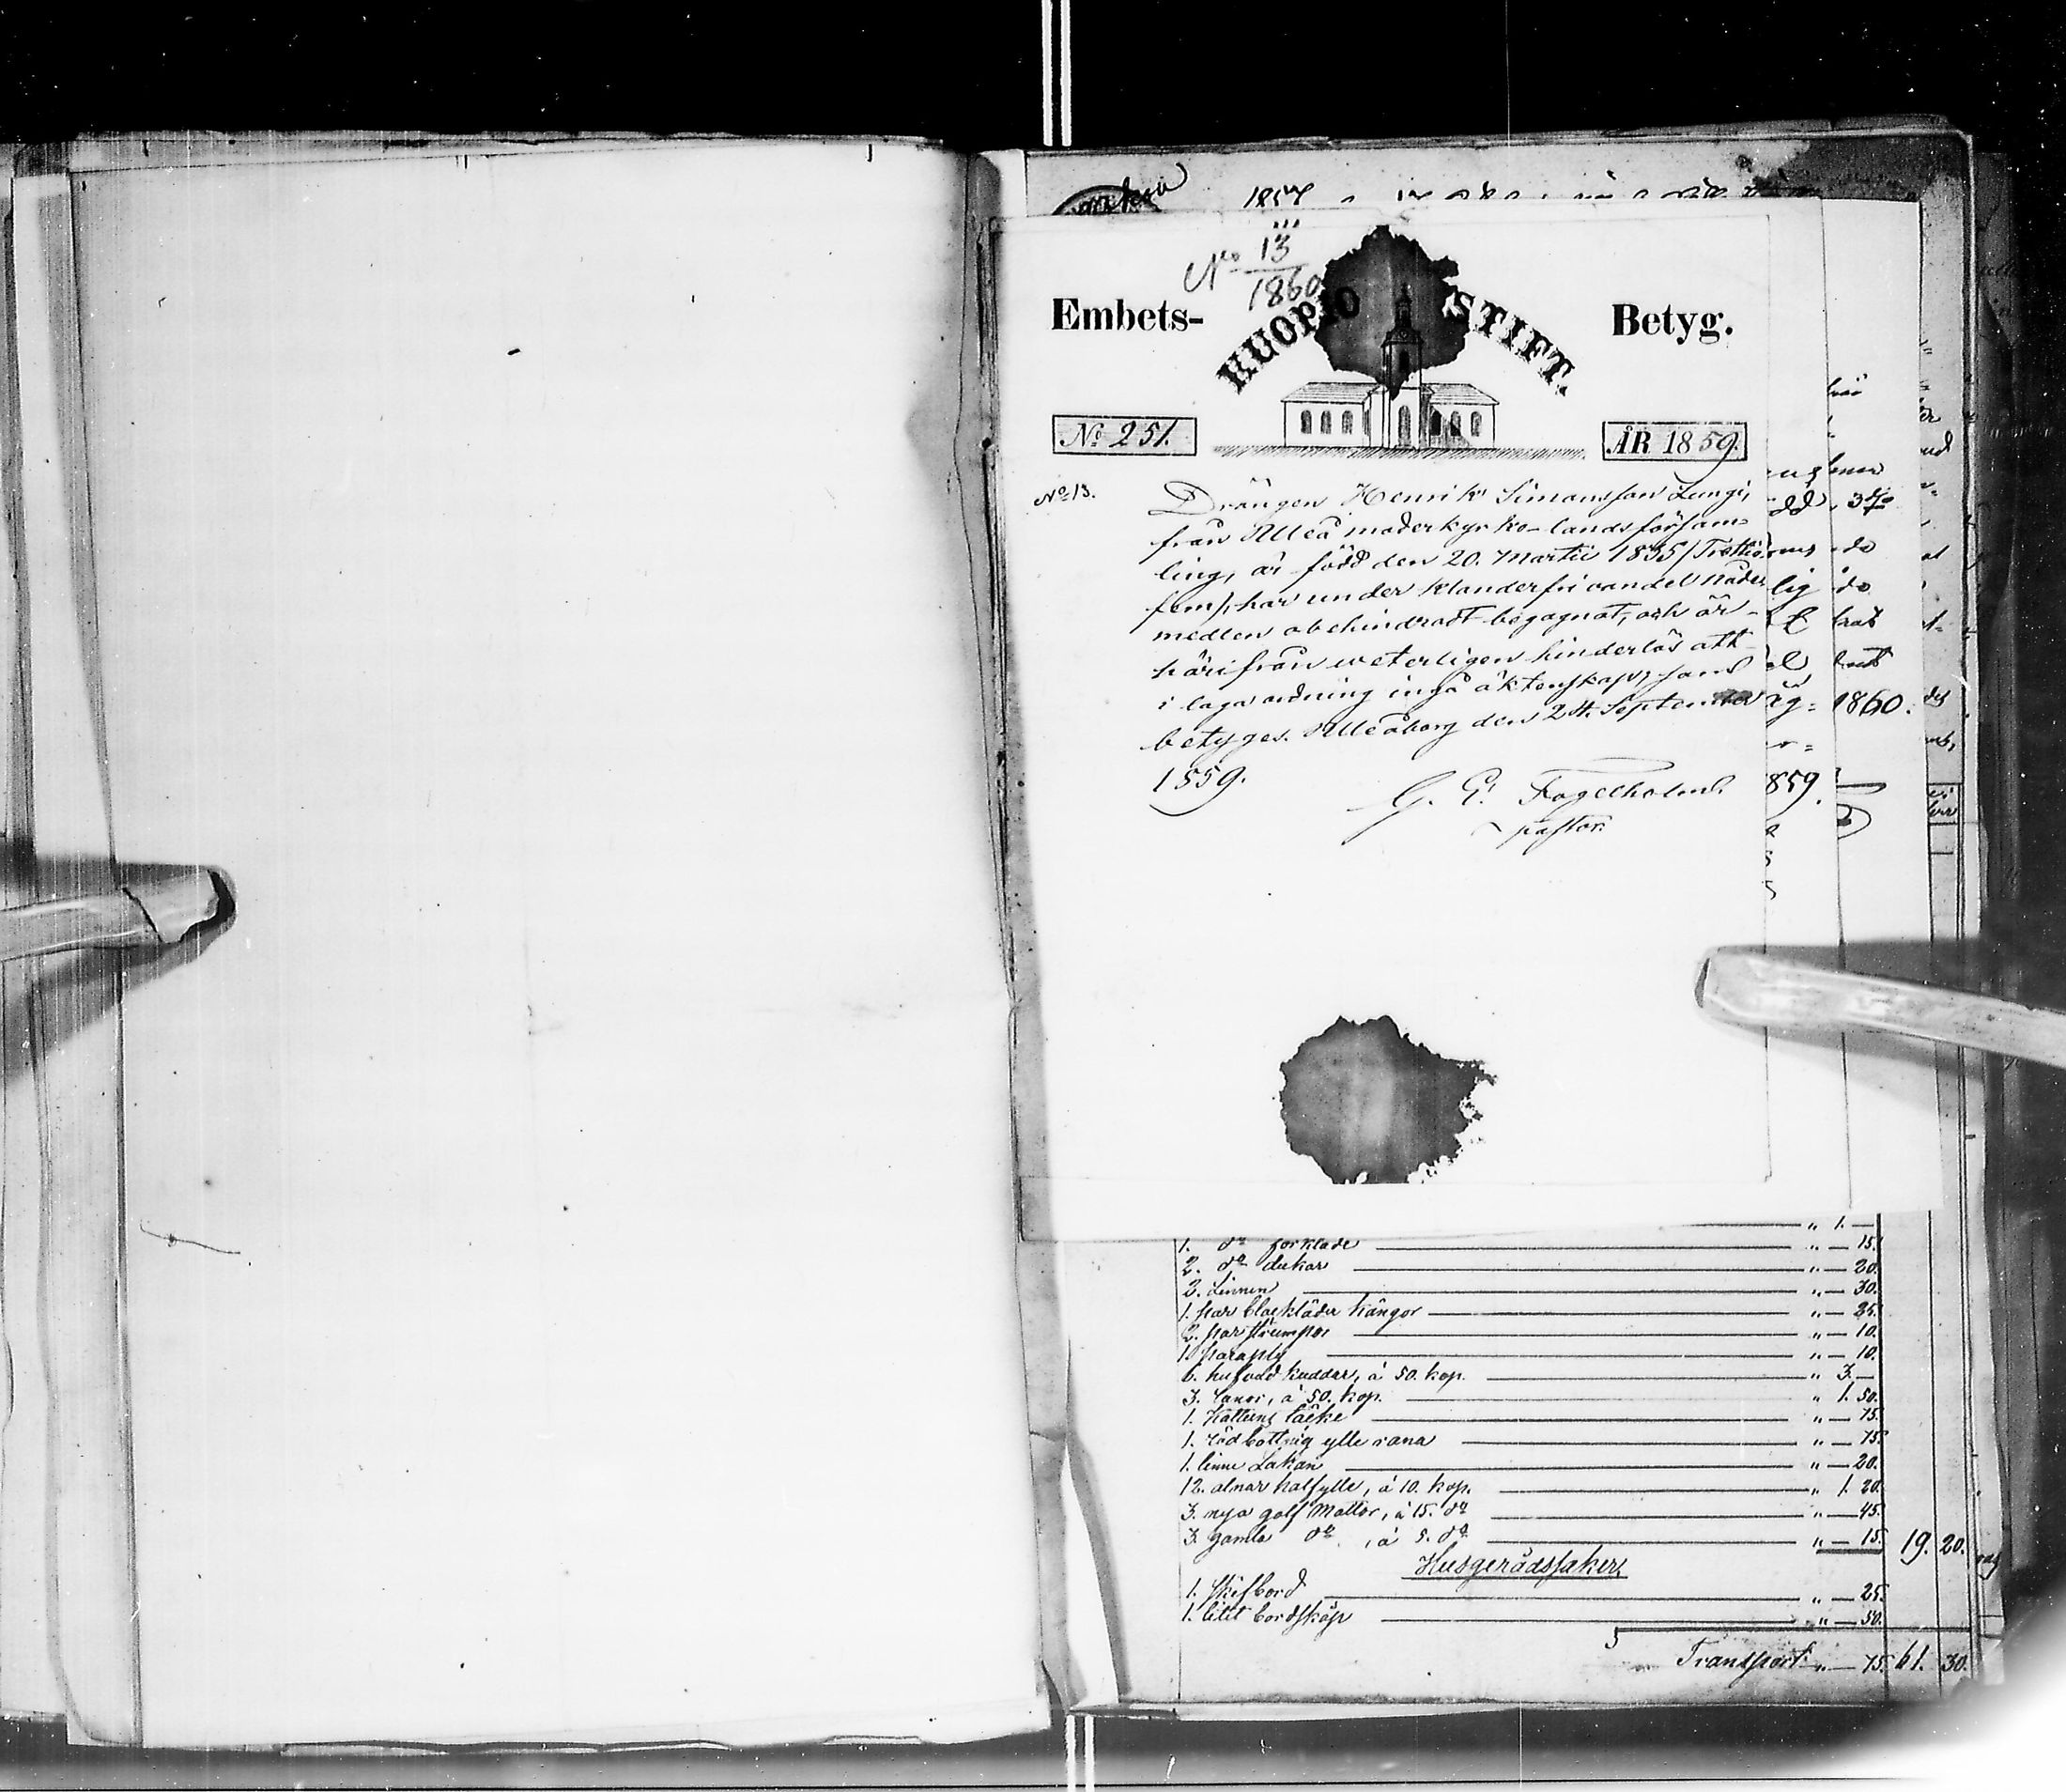 1857
No 13
1860
Embets-
KUOPIO STIFT.
Betyg.
No 251.
ÅR 1859.
No 13.
Drängen Henrik Simonsson Lungi,
från Uleå moderkyrko-landsförsam-
ling, är född den 20. Martii 1835 (Trettio
fem), har under klanderfri vandel nåde
medlen obehindradt begagnat, och är
härifrån veterligen hinderlös att
i laga ordning ingå äktenskap; som
betyges. Uleåborg den 24. September
1859.
G. E. Fogelholm.
pastor.
1860.
859.
" 1. —
1. do förkläde " — 15.
2. do dukar " — 20.
2. Linnen " — 30.
1. par blackläder kängor " — 25.
2. par strumpor " — 10.
1. paraply " — 10.
6. hufvud kuddar, á 50. kop. " 3. —
3. Lanor, á 50. kop. " 1. 50.
1. Kattuns täcke " — 75.
1. rödbottnig ylle rana " — 75.
1. linne Lakan " — 20.
12. alnar halfylle, á 10. kop. " 1. 20.
3. nya golf Mattor, á 15. do " — 45.
3. gamla do, á 5. do " — 15. 19. 20.
Husgerådssaker,
1. skifbord " — 25.
1. litet bordskåp " — 50.
Transport " — 75. 61. 30.